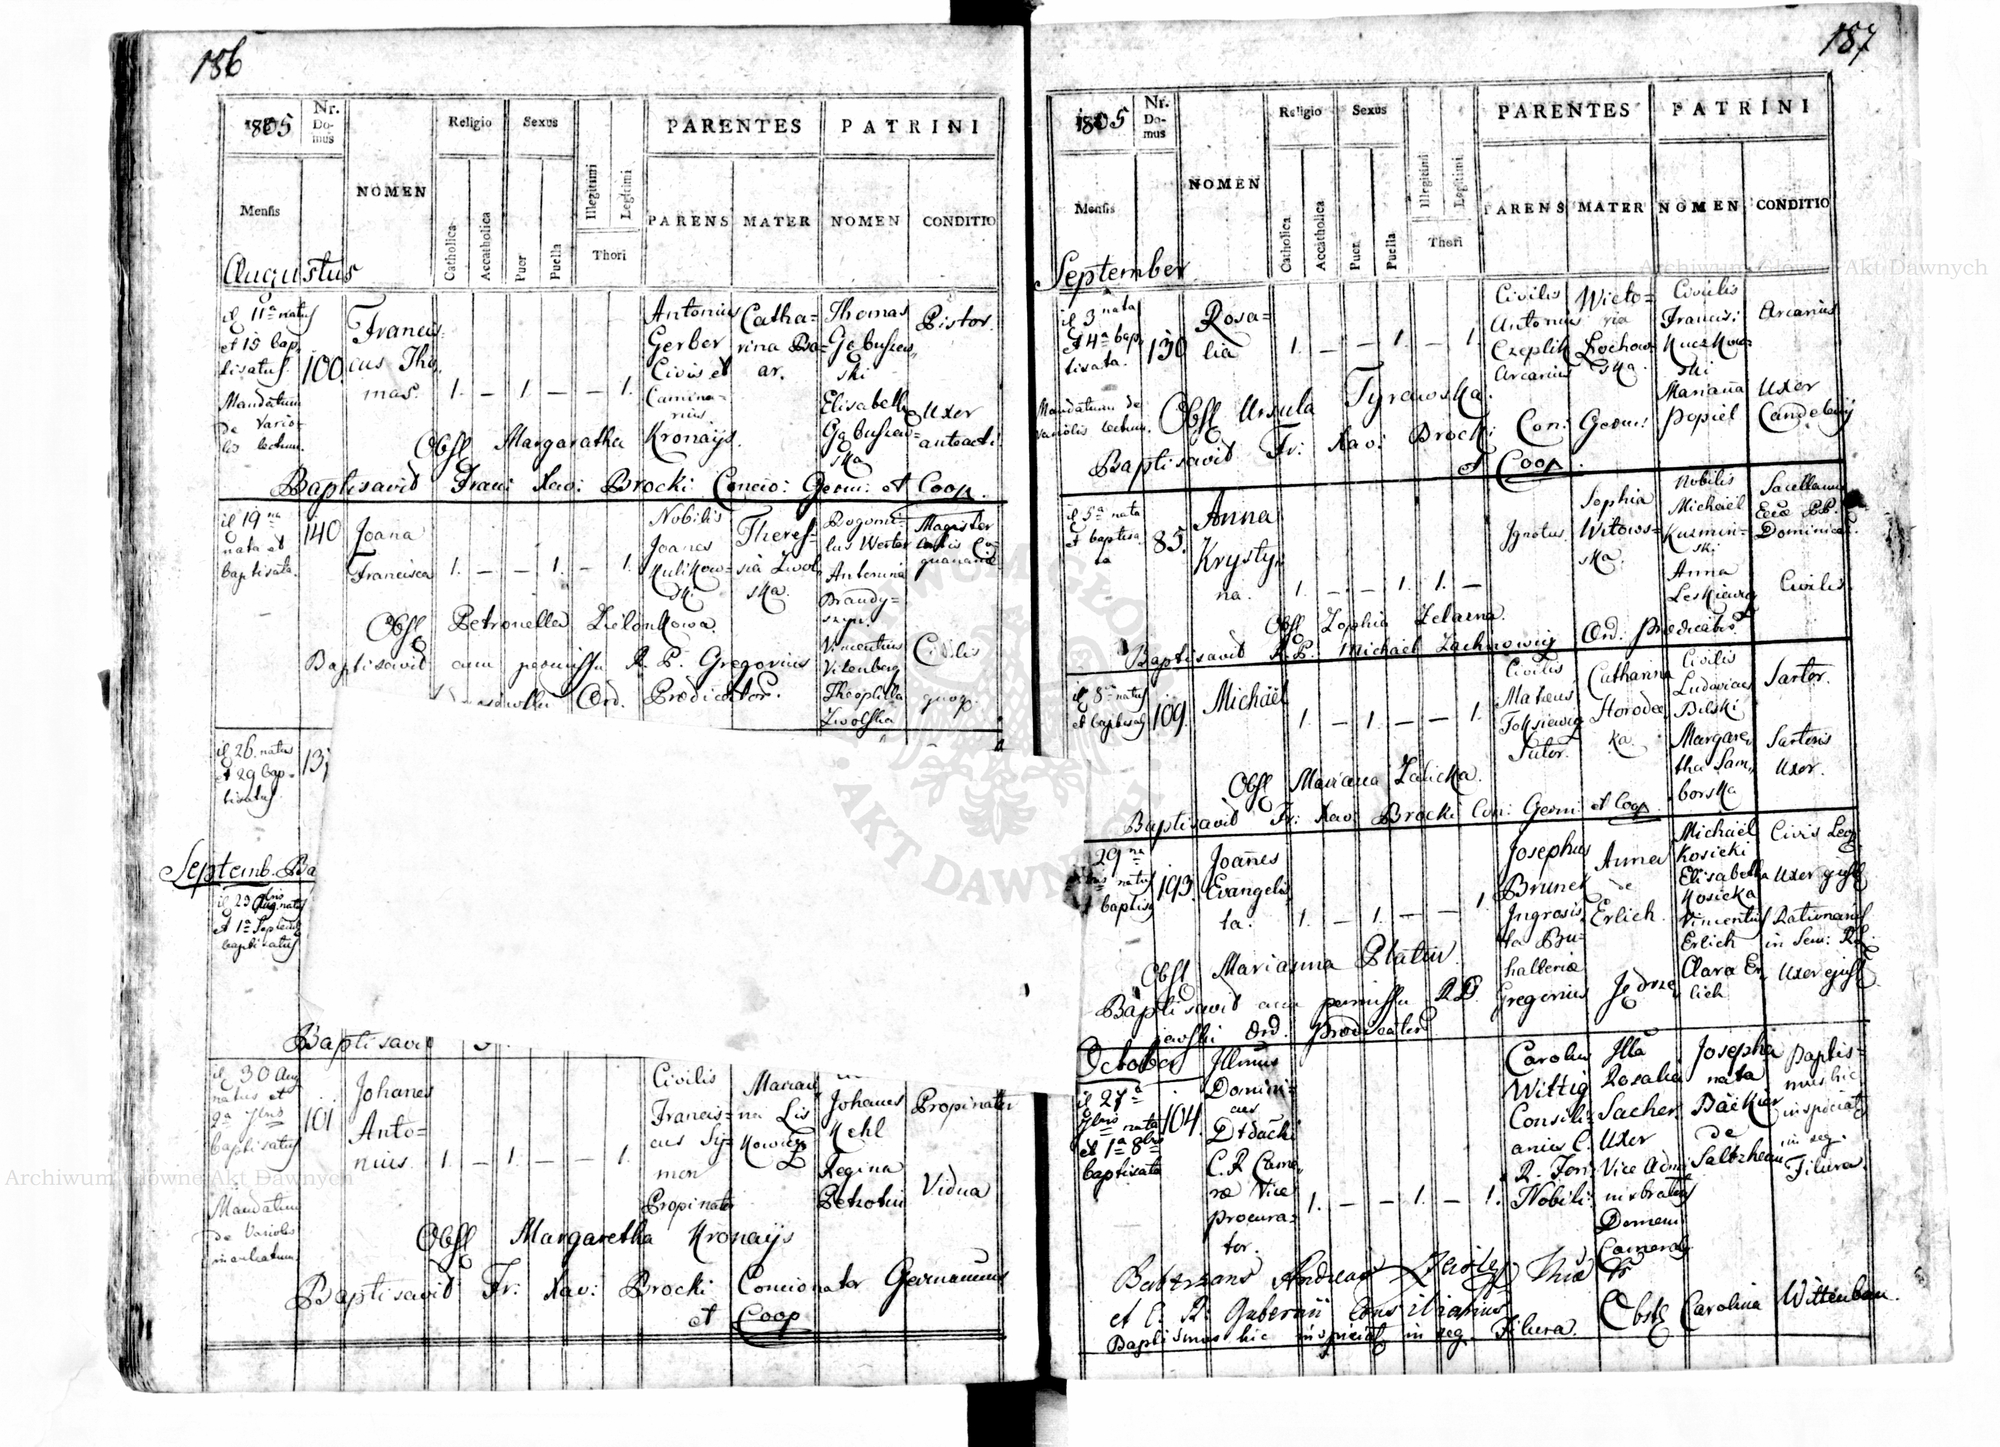 186
1805
Nr. Domus
NOMEN
Religio
Sexus
Illegitimi
Legitimi
Thori
PARENTES
PATRINI
Mensis
Catholica
Accatholica
Puer
Puella
PARENS
MATER
NOMEN
CONDITIO
Augustus
il 11a natus
et 15 bap.
tisatus.
Mandatum
de Vario-
lis lectum.
100.
Francis
cus Tho
mas.
1. — 1. — — 1.
Antonius
Gerber
Civis et
Camina-
rius
Catha-
rina Ba-
ar.
Thomas
Gabuszew
ski
Elisabetha
Gabuszew-
ska
Pistor.
Uxer
anteacti
Obst Margaretha Kronays.
Baptisavit Franc: Xav: Brocki Concio: Germ: et Coop.
il 19na
nata et
baptisata.
140
Joana
Francisca
1. — — 1. — 1.
Nobilis
Joanes
Kulikow-
ski
Theres-
sia Zwol
ska.
Bogomi-
lus Werter
Antonina
Brandy-
Vincentius
Vitenberg
Theophilla
Zwolska
Magister
Civilis
quoq.
Obst Petronella Zielonkowa.
Baptisavit cum permissu R. P. Gregorius
Ord. Prædicator.
il 26. natus
et 29 bap-
tisatus.
13
Septemb. Ba
il 29 Augnatus
et 1a Septemb
baptisatus
Baptisavit
il 30 Aug
natus et
2a 7bris
baptisatus
Mandatum
de Variolis
101
Johanes
Anto-
nius.
1. — 1. — — 1.
Civilis
Francis-
cus Sy-
mon
Propinator
Marian
na Lis
kowicz
Johanes
Kehl
Regina
Petrotin
Propinator
Vidua
Obst Margaretha Kronays
Baptisavit Fr: Xav: Brocki Concionator Germanicus
et Coop
187
1805
Nr. Domus
NOMEN
Religio
Sexus
Illegitimi
Legitimi
Thori
PARENTES
PATRINI
Mensis
Catholica
Accatholica
Puer
Puella
PARENS
MATER
NOMEN
CONDITIO
September
il 3 nata
et 4a bap
tisata.
Mandatum de
Variolis lectum.
130
Rosa-
lia
1. — — 1. — 1.
Civilis
Antonius
Czeplik
Arcarius
Wicto-
ria
Lochow
ska.
Civilis
Francis:
Kuczkow-
ski
Marianna
Popiel
Arcarius
Uxer
Obst Ursula Tyrawska.
Baptisavit Fr: Xav: Brocki Con: Germ:
et Coop.
il 5a nata
et baptisa
ta
85.
Anna
Krysty-
na.
1. — — 1. 1. —
Ignotus.
Sophia
Witows-
ka.
Nobilis
Michael
Kuzmin-
ski
Anna
Leskiewicz
Sacellanus
Eccæ PP.
Dominica:
Civilis.
Obst Zophia Zelazna.
Baptisavit R.P. Michael Zachnowicz Ord: Prædicator
il 8a natus
et baptisat
109.
Michael
1. — 1. — — 1.
Civilis
Mateus
Toksiewicz
Sutor.
Catharina
Horodec
ka.
Civilis
Ludovicus
Bilski
Margare
tha Sam
borska
Sartor.
Sartoris
Uxor.
Obst Mariana Zalicka.
Baptisavit Fr: Xav: Brocki Con: Germ: et Coop.
29na
natus
baptis
193.
Joanes
Evangelis
ta.
1. — 1. — — 1
Josephus
Brunek
Ingrosis
ta Bu-
halteriæ
Anna
de
Erlich.
Michael
Kosicki
Elisabetha
Kosicka
Vincentius
Erlich
Clara Er
lich
Civis Leop
Uxer ejus
Rationarius
in Sem: R.L.
Uxer ejus
Obst Marianna Platin.
Baptisavit cum permissu R.P. Gregorius Jędrze
jewski Ord: Prædicator
October
il 27a
7bris nata
et 1a 8bris
baptisata
104.
Illmus
Domini-
cus
C. R. Came
ræ Vice
procura-
tor.
1. — — 1. — 1.
Carolus
Wittig
Consili-
arius C.
R. Fori
Nobili:
Illa
Rosalia
Sacher
Uxer
Vice Admi
nistratoris
Domani
Cameral:
Josepha
nata
Bäckier
de
Baptis-
mus hic
inspiciat
in seg.
Filiera.
Andreas
et C. R. Gubernii Consiliarius
Obst Carolina Wittenbau
Baptismus hic inspiciat in seg. Filiera.
Archiwum Główne Akt Dawnych
Archiwum Główne Akt Dawnych
ARCHIWUM GŁÓWNE AKT DAWNYCH